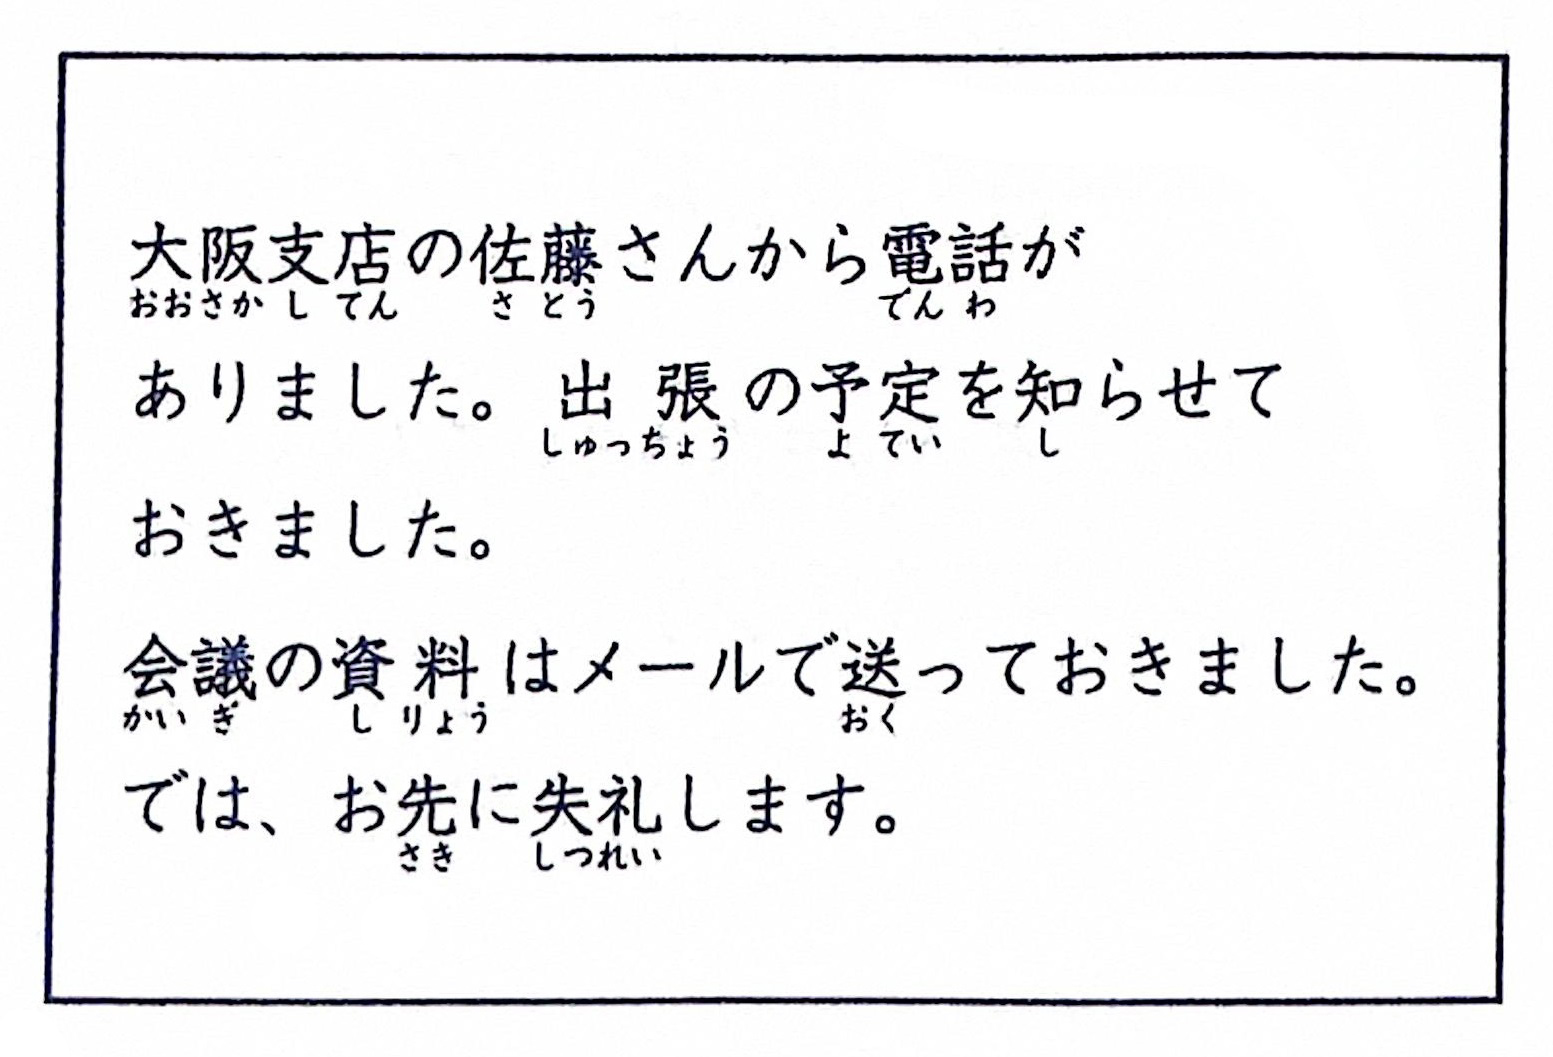 大阪支店の佐藤さんから電話が
おおさか し てん さ とう でん わ
ありました。出張の予定を知らせて
しゅっちょう よ てい し
おきました。
会議の資料はメールで送っておきました。
かい ぎ し りょう おく
では、お先に失礼します。
さき しつれい